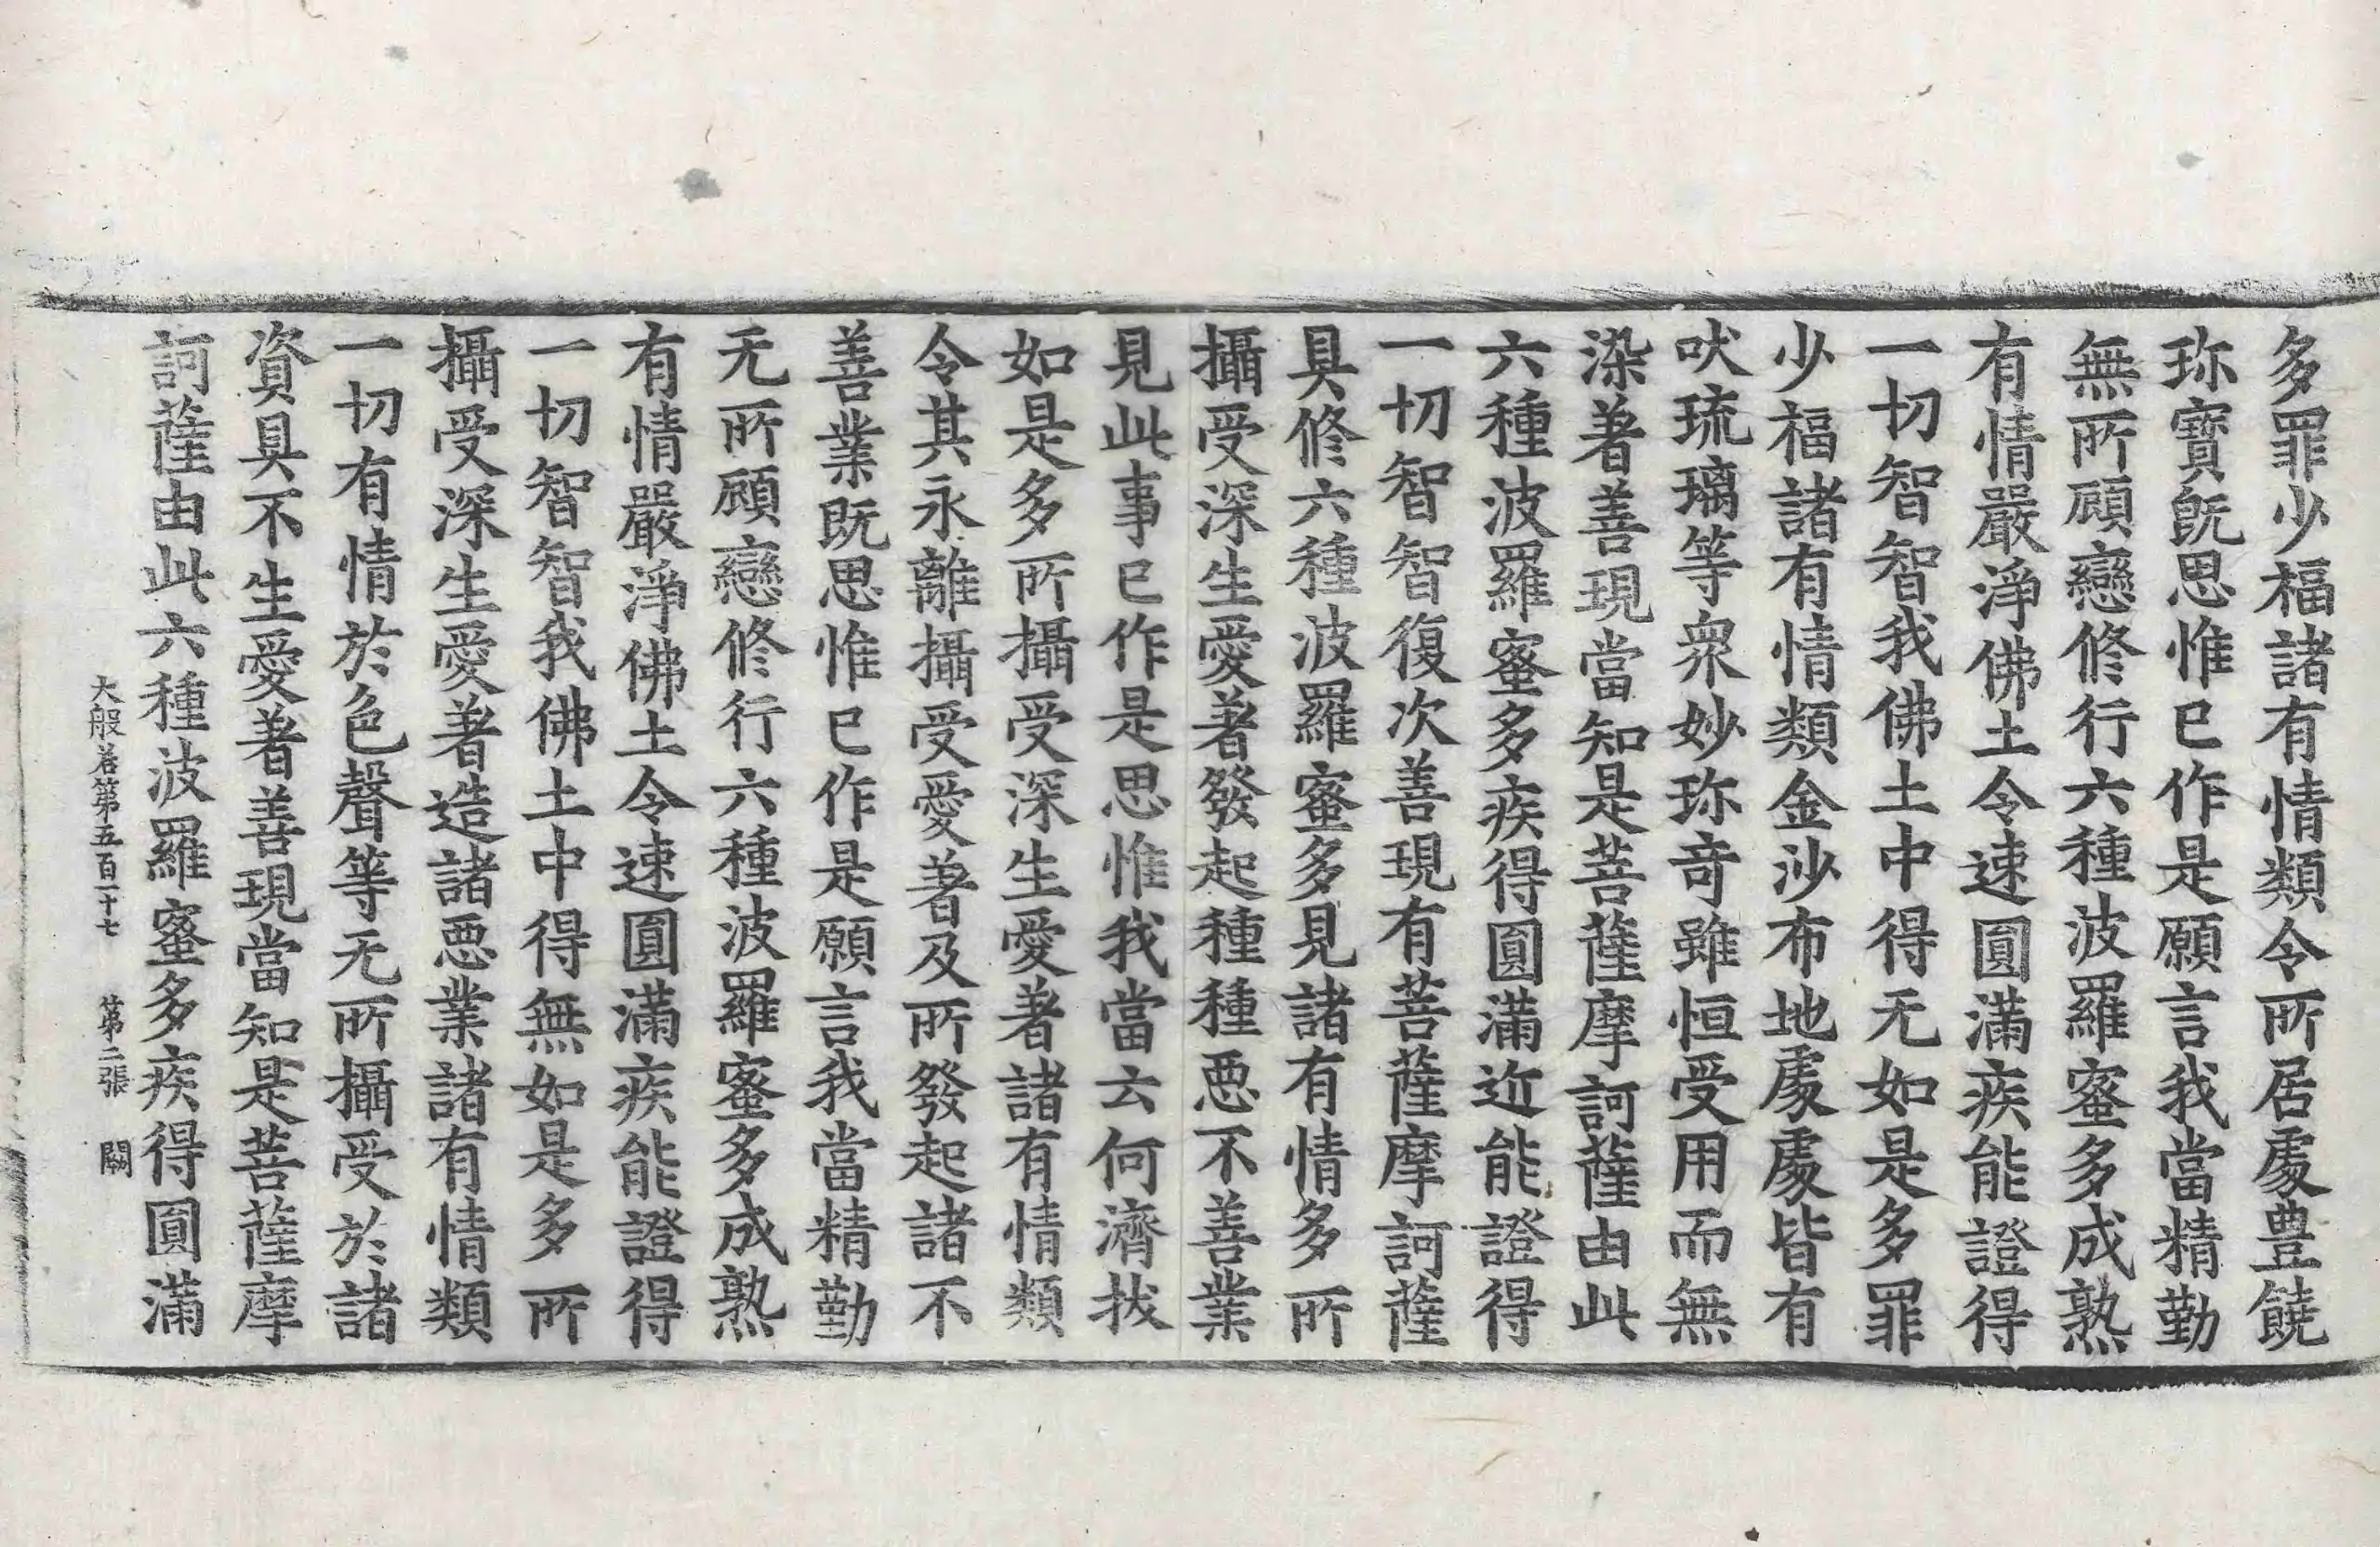 多罪少福諸有情類令所居處豊饒
珎寶旣思惟已作是願言我當精勤
無所顧戀修行六種波羅蜜多成熟
有情嚴淨佛土令速圓滿疾能證得
一切智智我佛土中得无如是多罪
少福諸有情類金沙布地處處皆有
吠琉璃等衆妙珎竒雖恒受用而無
染著善現當知是菩薩摩訶薩由此
六種波羅蜜多疾得圓滿近能證得
一切智智復次善現有菩薩摩訶薩
具修六種波羅蜜多見諸有情多所
攝受深生愛著發起種種惡不善業
見此事已作是思惟我當云何濟拔
如是多所攝受深生愛著諸有情類
令其永離攝受愛著及所發起諸不
善業旣思惟已作是願言我當精勤
无所顧戀修行六種波羅蜜多成熟
有情嚴淨佛土令速圓滿疾能證得
一切智智我佛土中得無如是多所
攝受深生愛著造諸惡業諸有情類
一切有情於色聲等无所攝受於諸
資具不生愛著善現當知是菩薩摩
訶薩由此六種波羅蜜多疾得圓滿
大般卷第五百一十七 第二張 闕